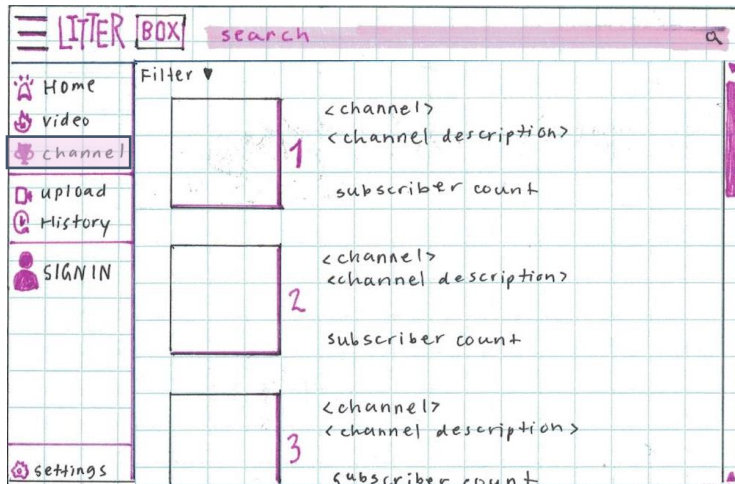 LITTER BOX
search
Home
video
channel
upload
History
SIGN IN
settings
Filter
1
<channel>
<channel description>
subscriber count
2
<channel>
<channel description>
subscriber count
3
<channel>
<channel description>
subscriber count